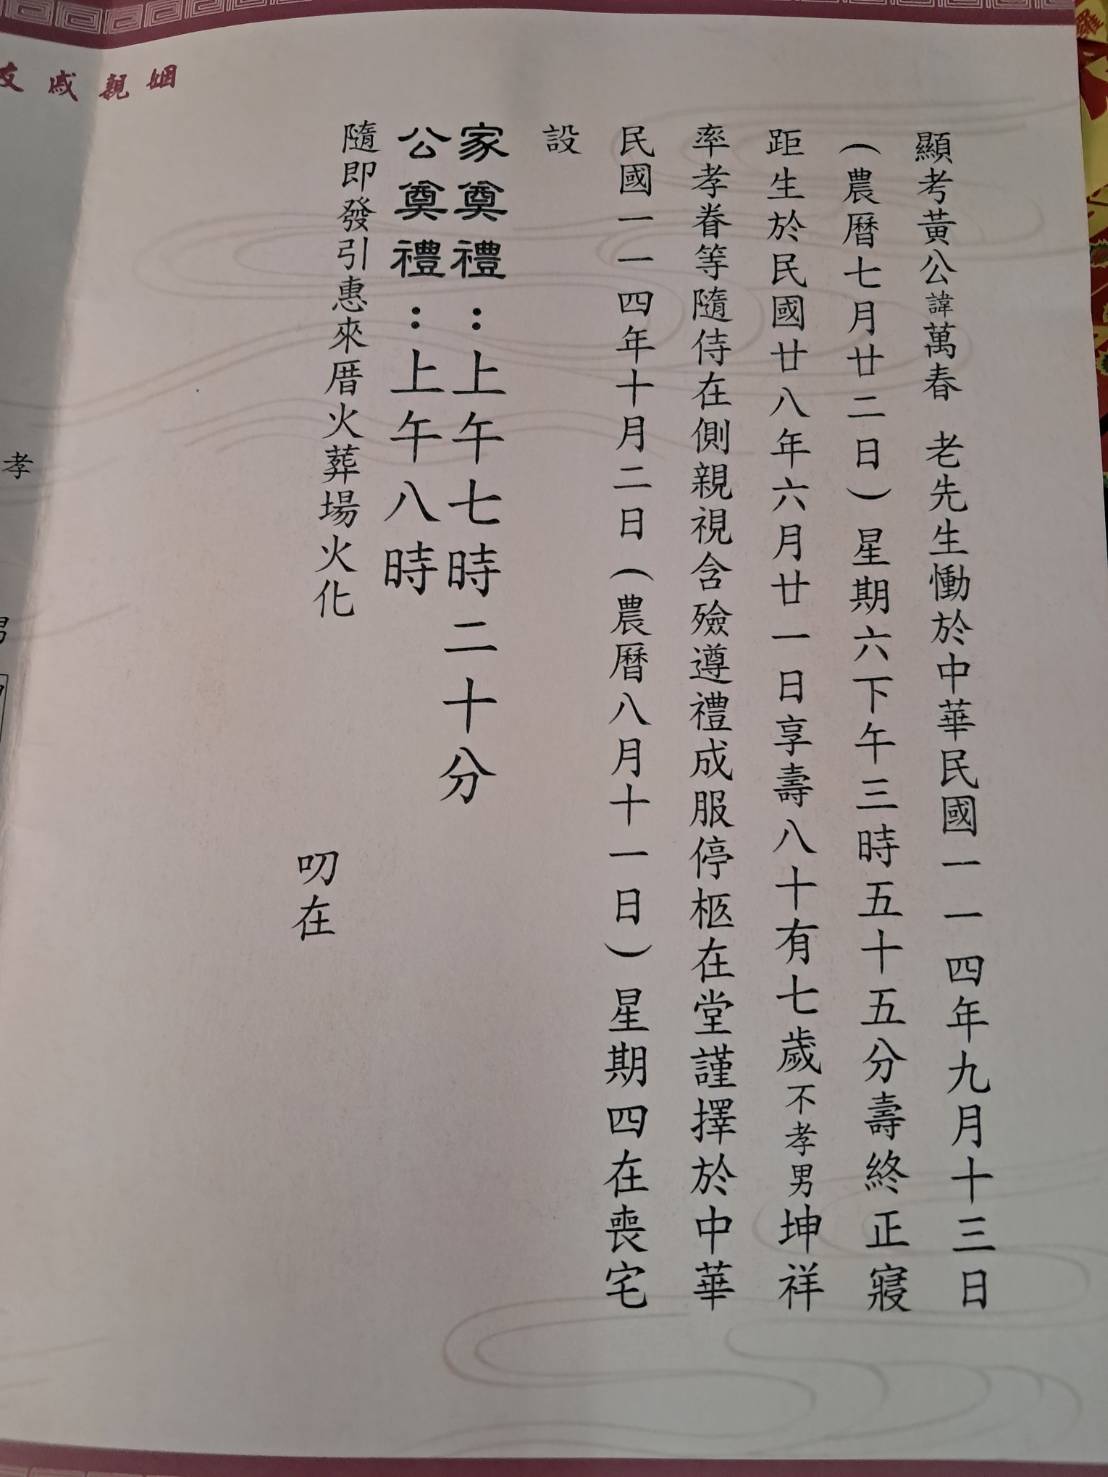 顯考黃公諱萬春　老先生慟於中華民國一一四年九月十三日
（農曆七月廿二日）星期六下午三時五十五分壽終正寢
距生於民國廿八年六月廿一日享壽八十有七歲不孝男坤祥
率孝眷等隨侍在側親視含殮遵禮成服停柩在堂謹擇於中華
民國一一四年十月二日（農曆八月十一日）星期四在喪宅
設
家奠禮：上午七時二十分
公奠禮：上午八時
隨即發引惠來厝火葬場火化
叨在
姻親戚友
孝
男